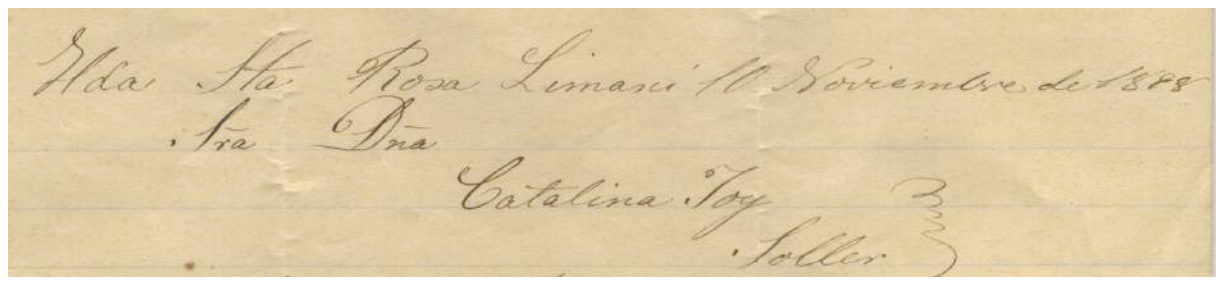 Hda Sta Rosa Limani 10 Noviembre de 1888
Sra Dña
Catalina Joy
Soller